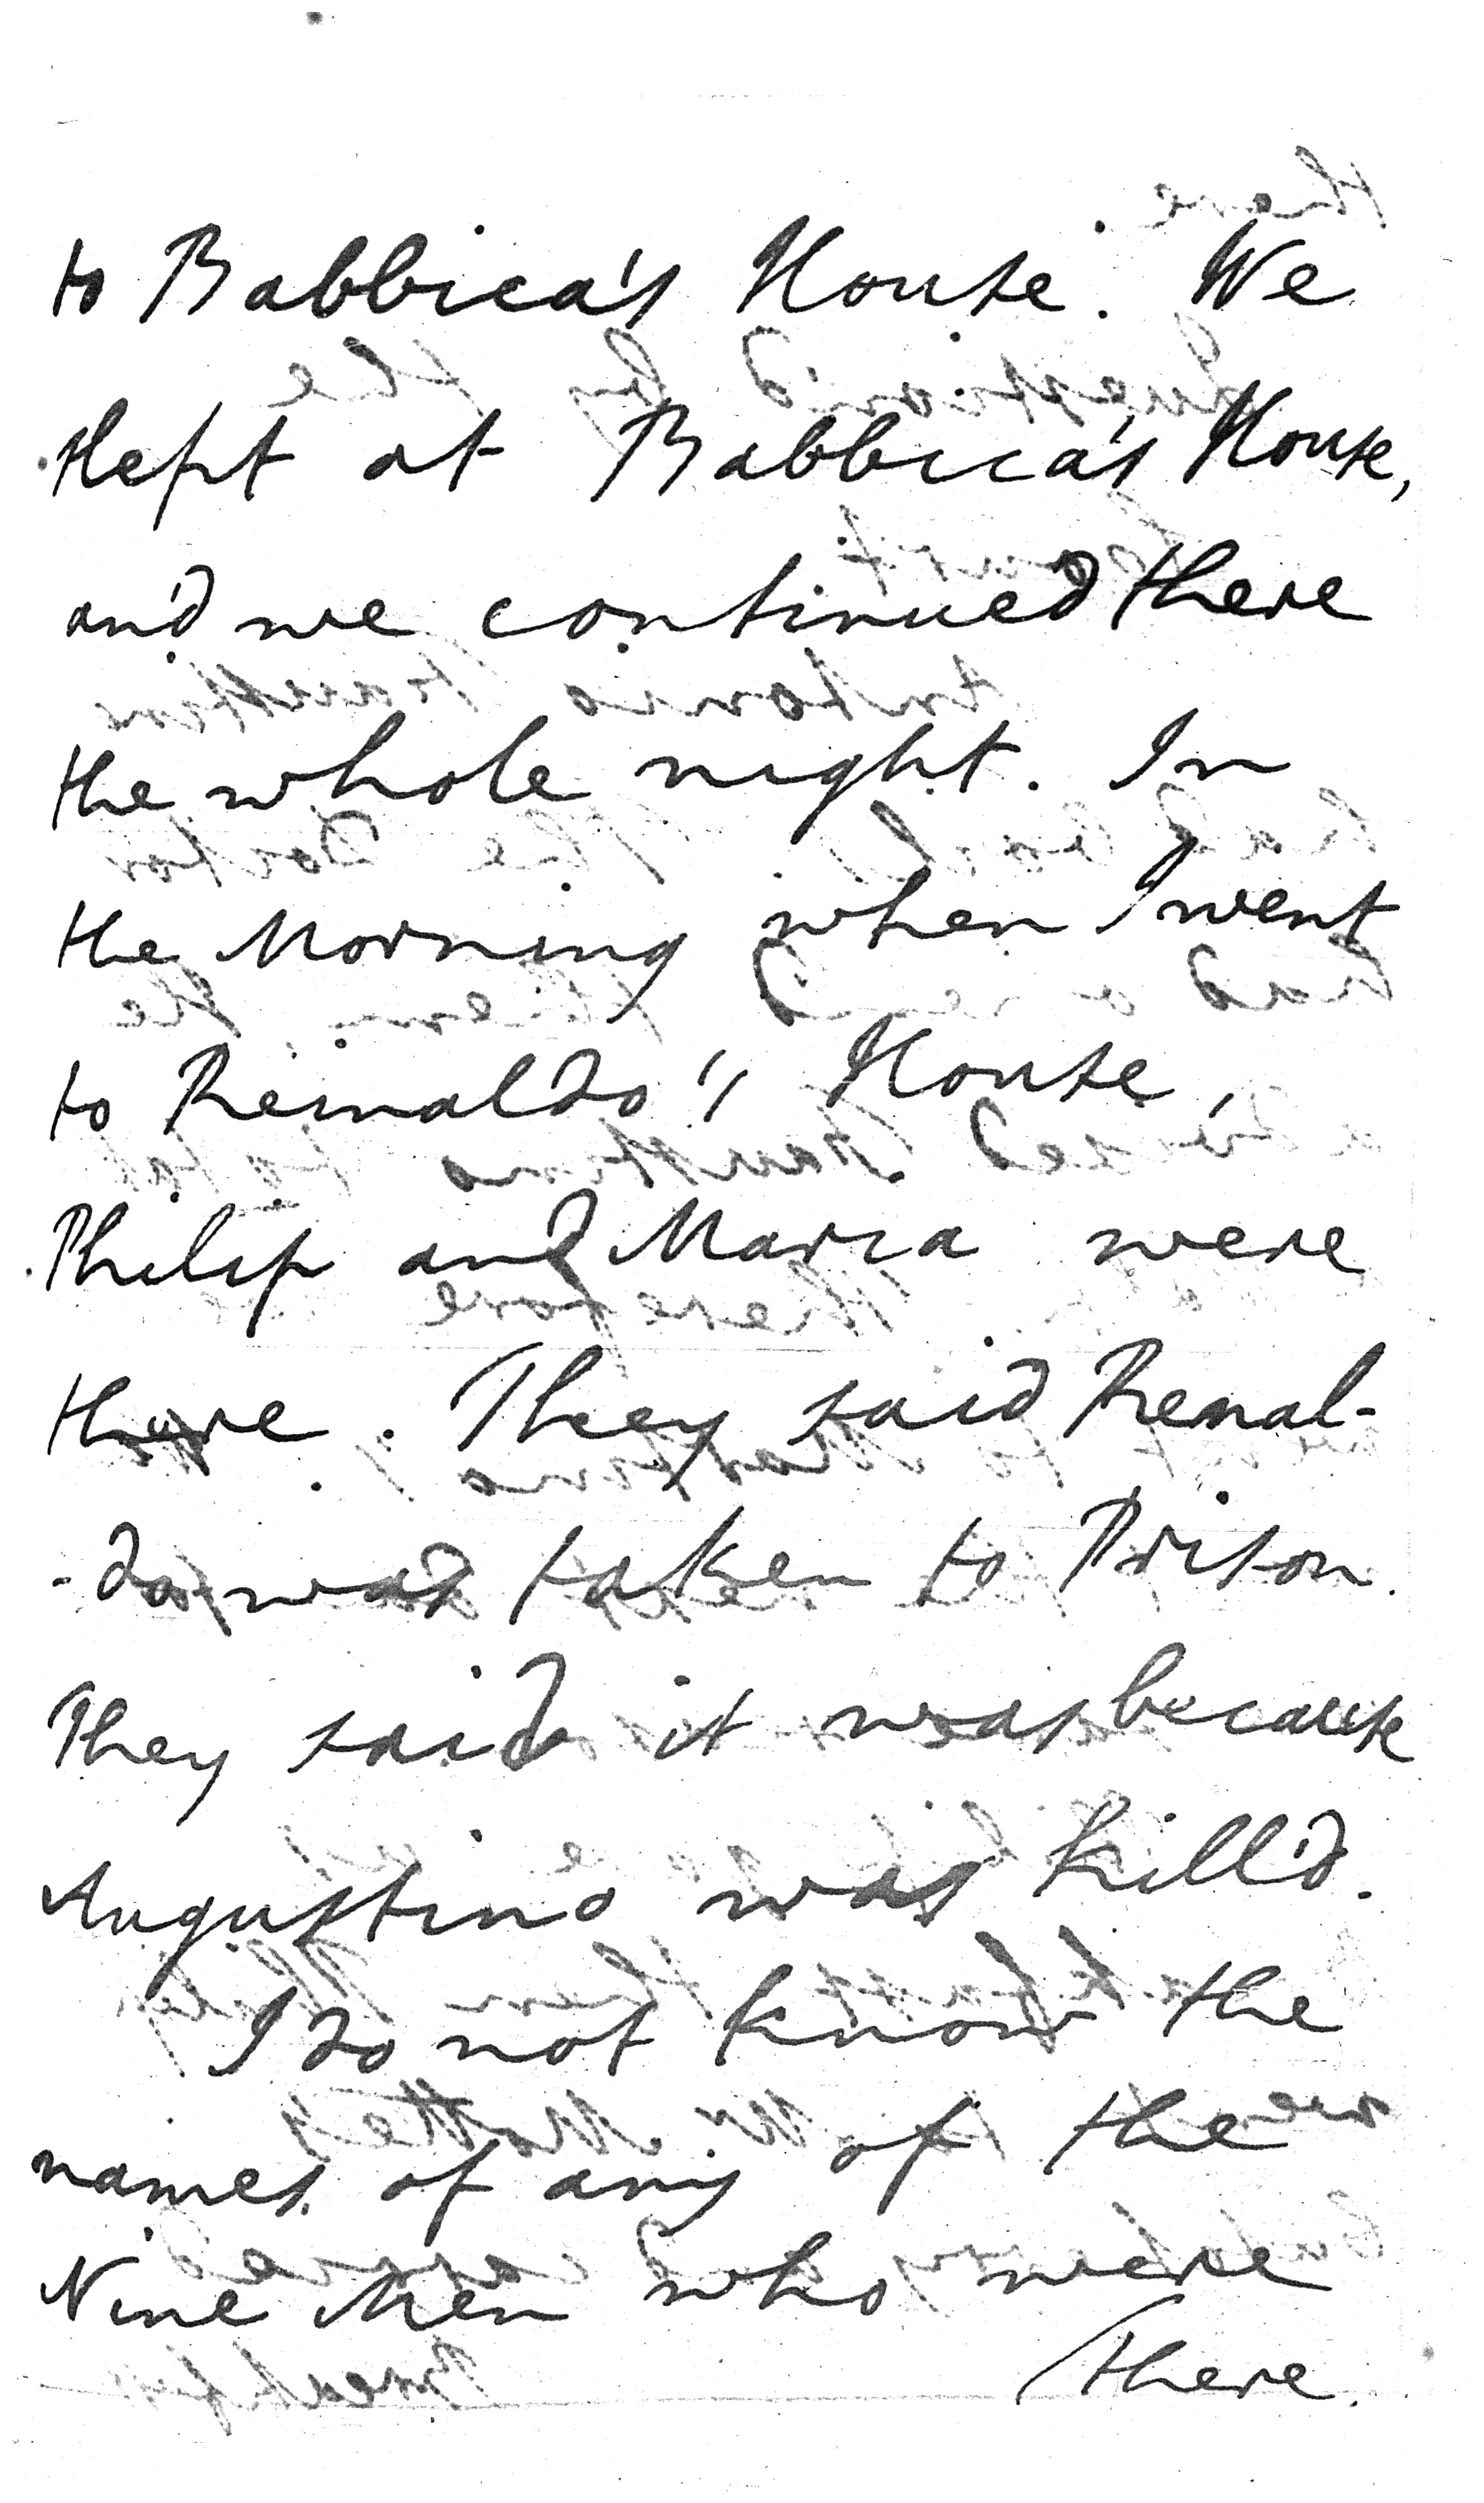 to Babbica's House. We
slept at Babbica's House,
and we continued there
the whole night. In
the Morning when I went
to Reinaldo's House,
Philip and Maria were
there. They said Renal-
-do was taken to Prison.
They said it was because
Augustino was kill'd.
I do not know the
names of any of the
Nine Men who were
there.